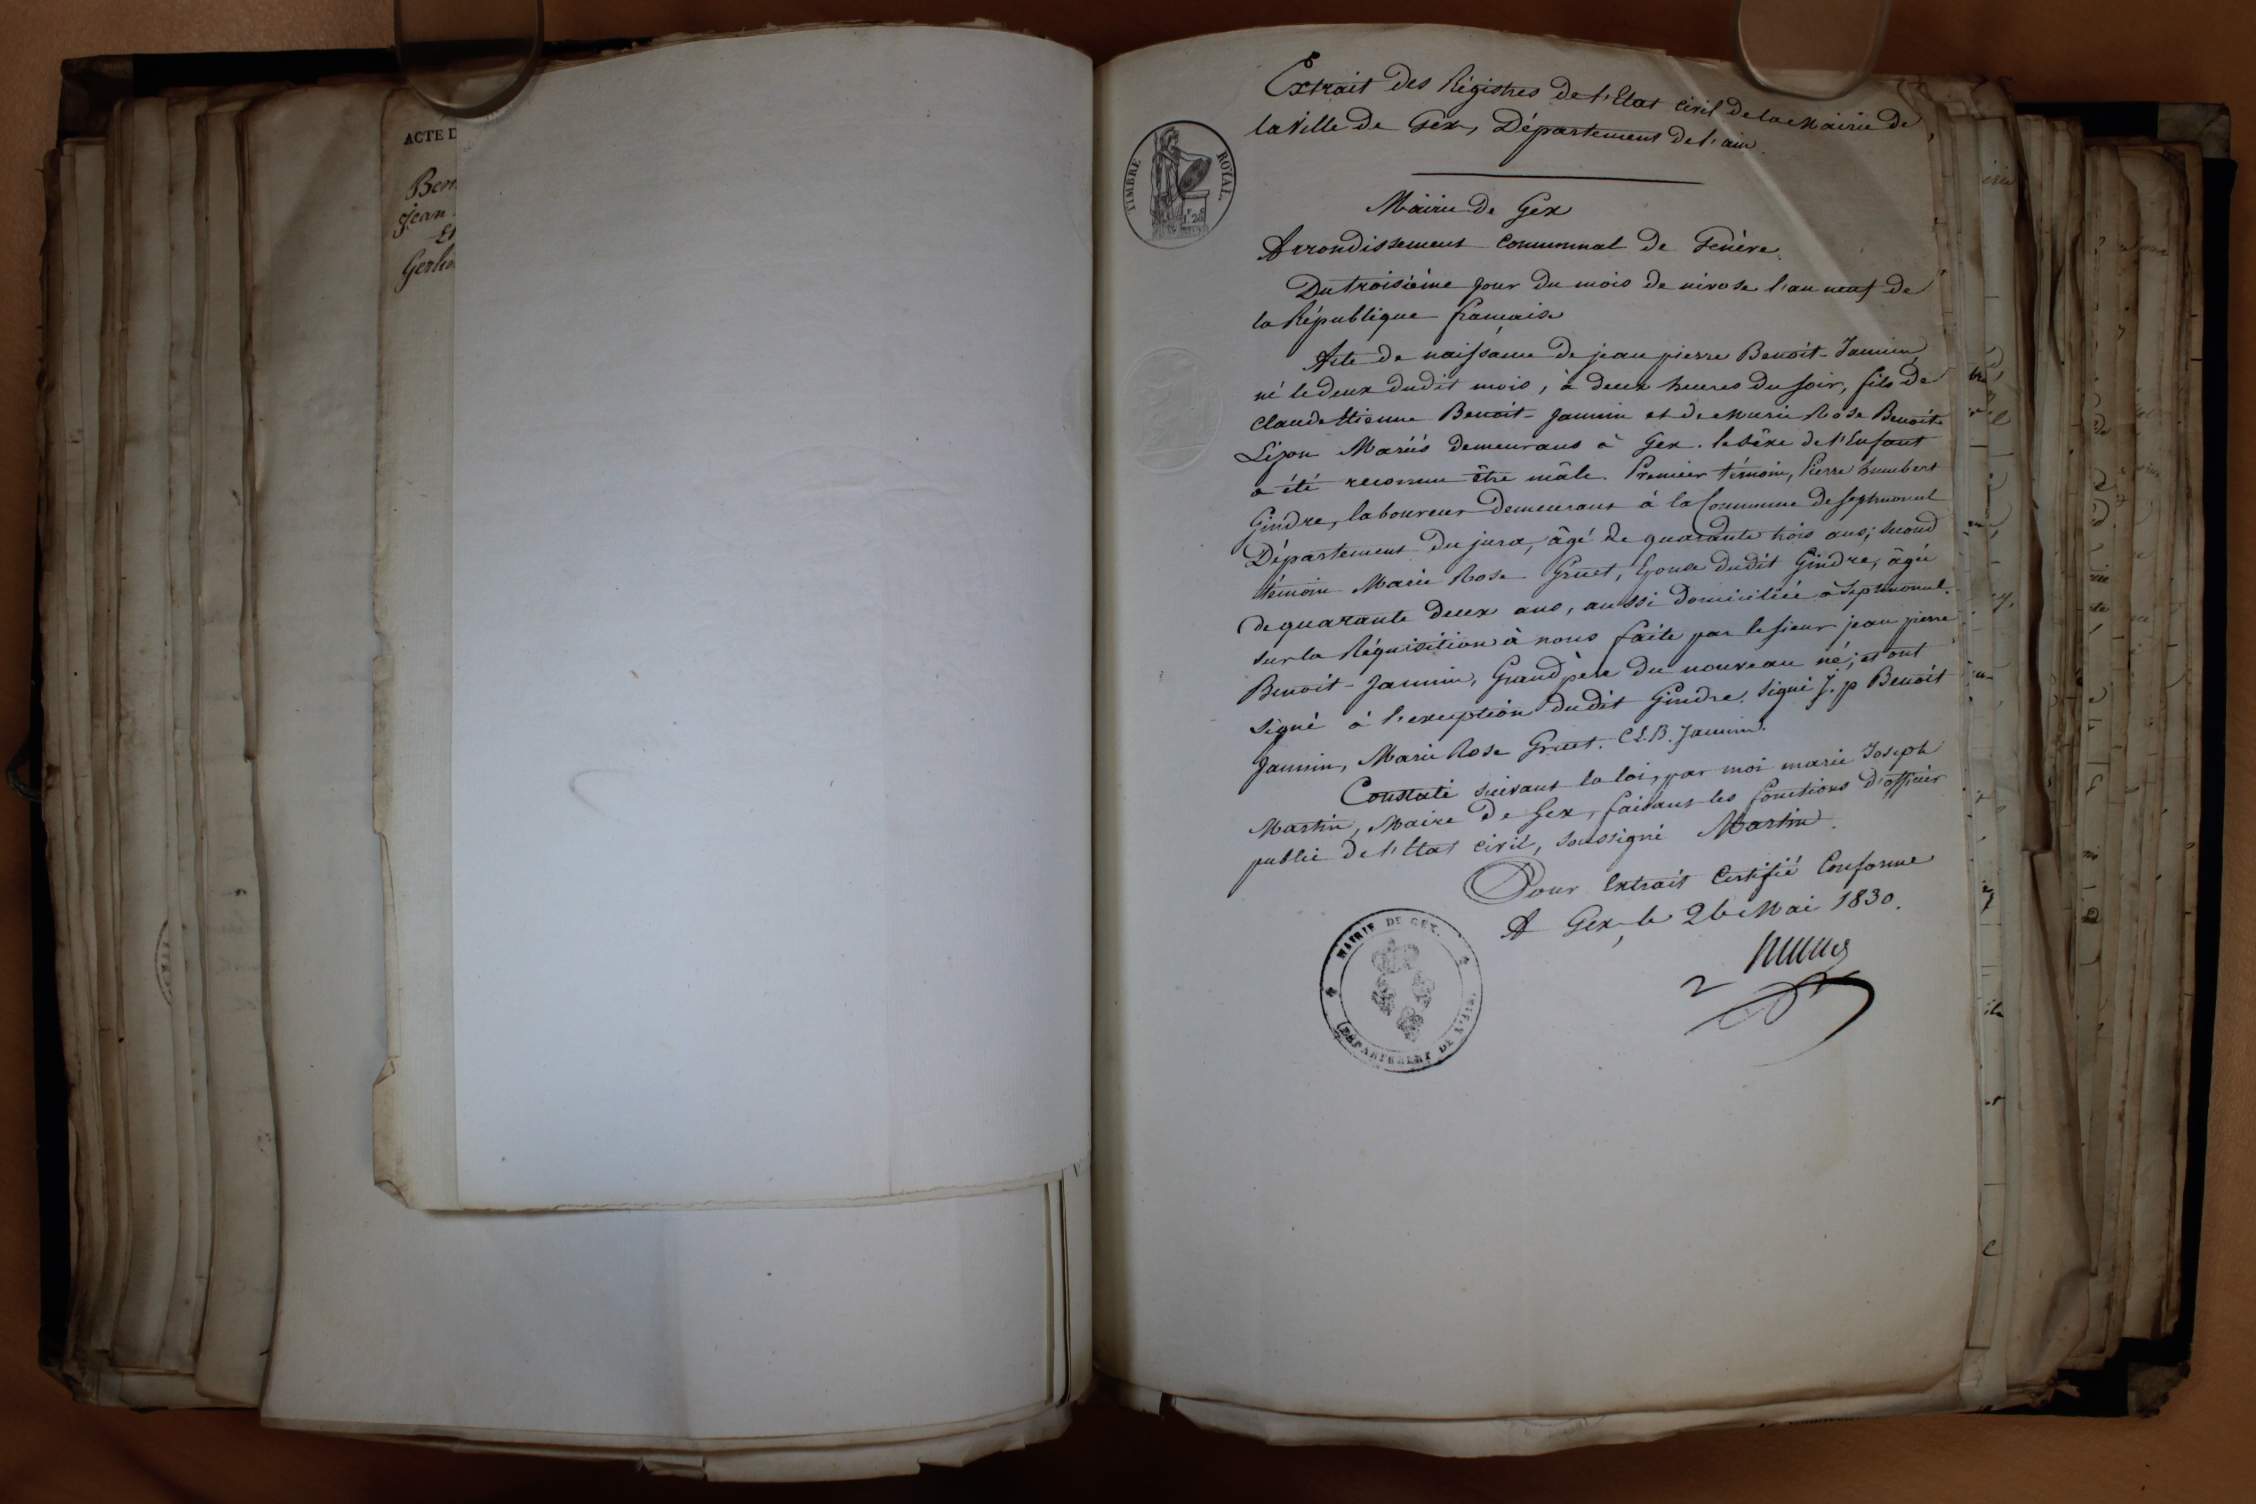 ACTE D
Ben
Jean
Et
Extrait des Régistres de l'Etat Civil de la Mairie de
la Ville de Gex, Département de l'ain.
TIMBRE ROYAL
Mairie de Gex
Arrondissement Communal de Genève.
Du troisième jour du mois de nivose l'an neuf de
la République francaise
Acte de naissance de jean pierre Benoit-Jannin
né le deux dudit mois, à deux heures du soir, fils de
Claude Etienne Benoit-Jannin et de Marie Rose Benoit
Lizon Mariés demeurans à Gex. le sêxe de l'Enfant
a été reconnu être mâle. Premier témoin, Pierre humbert
Gindre, laboureur demeurant à la Commune de Septmoncel
Département du jura, âgé de quarante trois ans; second
témoin Marie Rose Gruet, Epouse dudit Gindre, âgée
de quarante deux ans, aussi domiciliée à Septmoncel.
sur la Réquisition à nous faite par le sieur jean pierre
Benoit-Jannin, Grand père du nouveau né; et ont
signé à l'exception dudit Gindre. Signé J. p Benoit
Jannin, Marie Rose Gruet. C.E.B. Jannin.
Constaté suivant la loi, par moi marie Joseph
Martin, Maire de Gex, faisant les fonctions d'officier
public de l'Etat civil, soussigné Martin.
Pour Extrait Certifié Conforme
A Gex, le 26 Mai 1830.
MAIRIE DE GEX.
DÉPARTEMENT DE L'AIN.